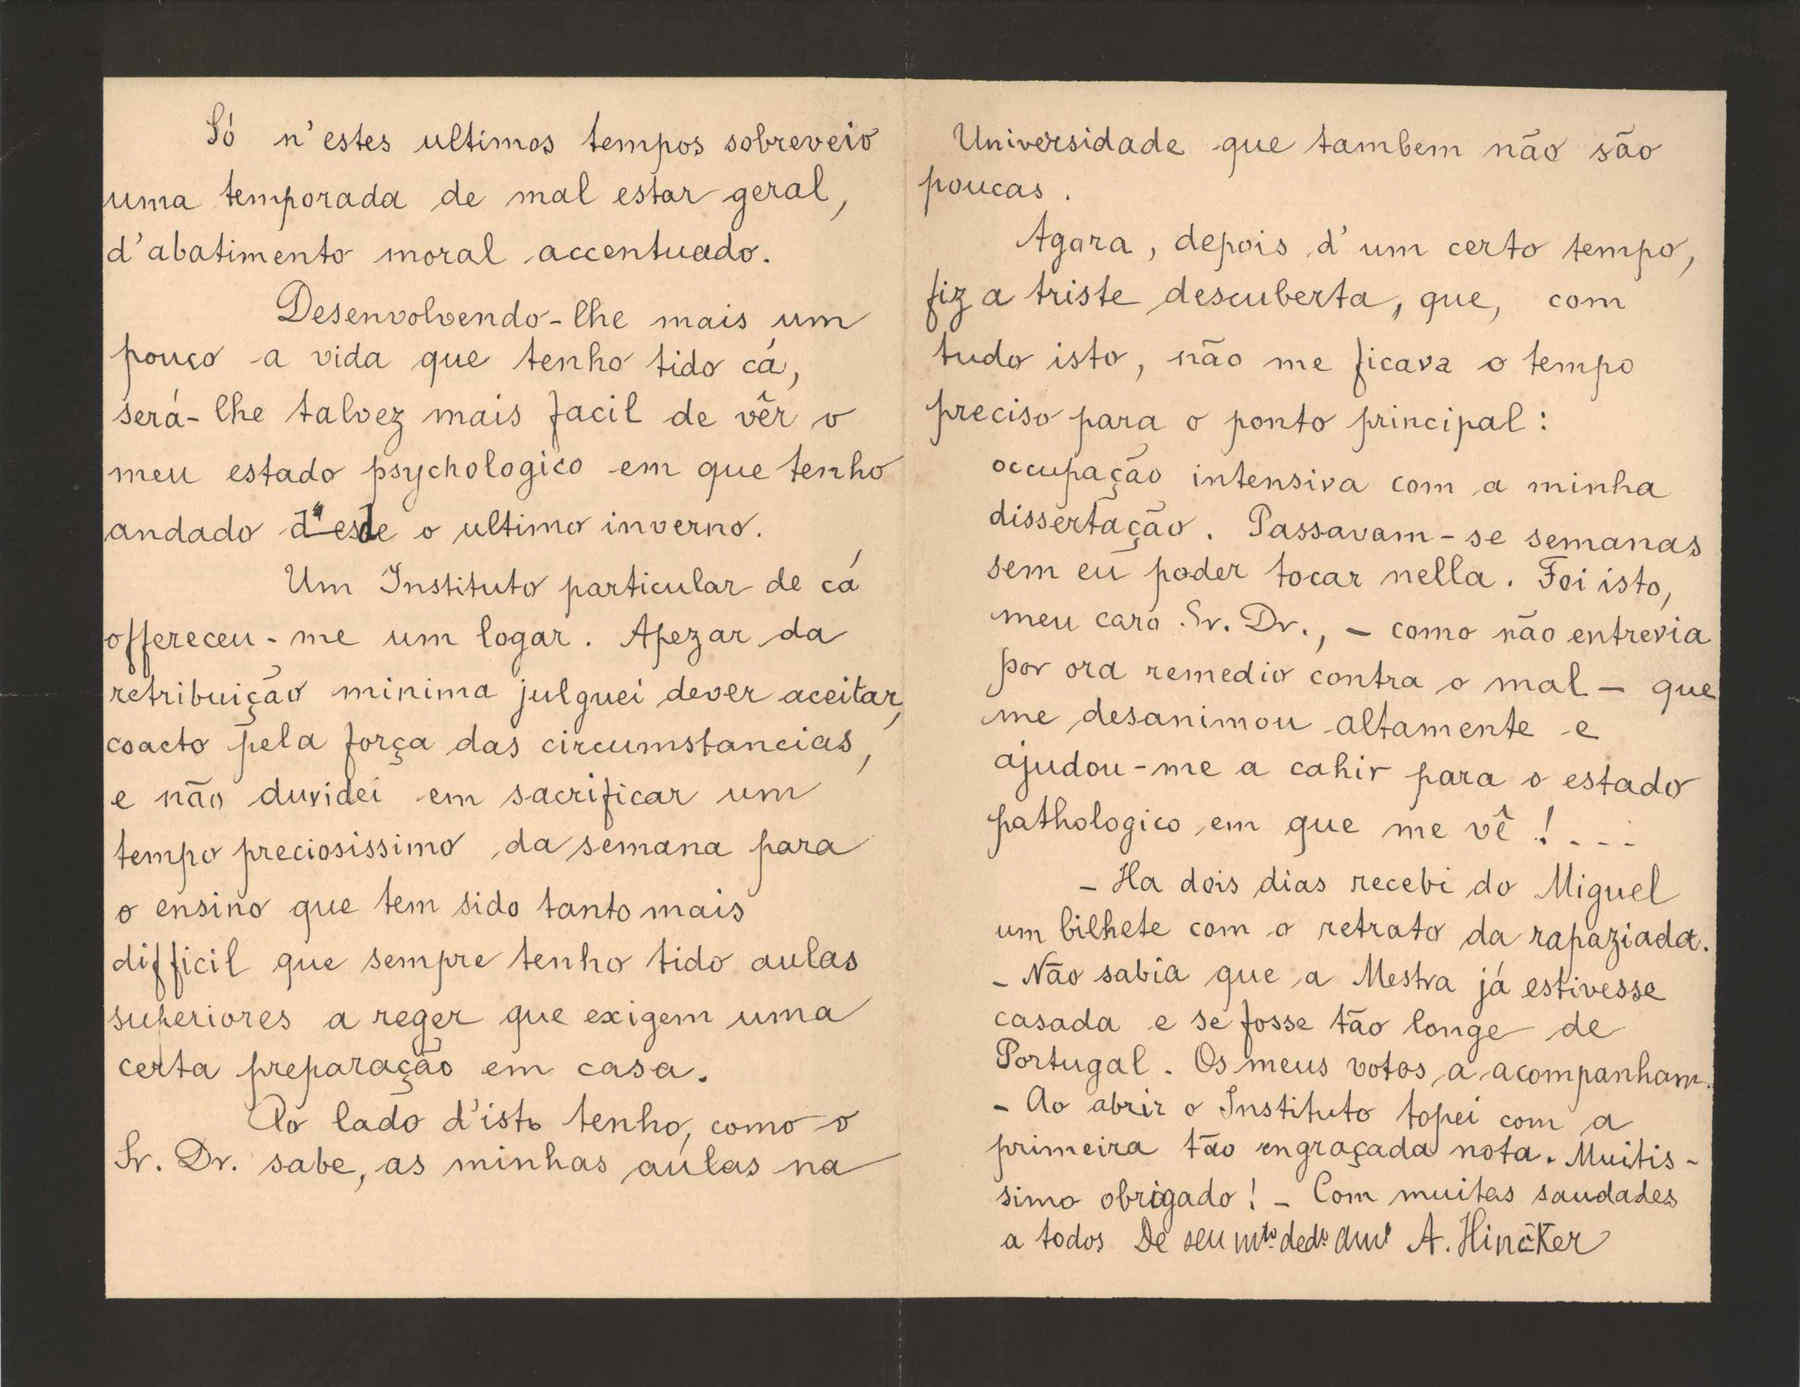 Só n'estes ultimos tempos sobreveio
uma temporada de mal estar geral,
d'abatimento moral accentuado.
Desenvolvendo-lhe mais um
pouco a vida que tenho tido cá,
será-lhe talvez mais facil de vêr o
meu estado psychologico em que tenho
andado desde o ultimo inverno.
Um Instituto particular de cá
offereceu-me um logar. Apezar da
retribuição minima julguei dever aceitar,
coacto pela força das circumstancias,
e não duvidei em sacrificar um
tempo preciosissimo da semana para
o ensino que tem sido tanto mais
difficil que sempre tenho tido aulas
superiores a reger que exigem uma
certa preparação em casa.
Ao lado d'isto tenho, como o
Sr. Dr. sabe, as minhas aulas na
Universidade que tambem não são
poucas.
Agora, depois d'um certo tempo,
fiz a triste descuberta, que, com
tudo isto, não me ficava o tempo
preciso para o ponto principal:
occupação intensiva com a minha
dissertação. Passavam-se semanas
sem eu poder tocar nella. Foi isto,
meu caro Sr. Dr., – como não entrevia
por ora remedio contra o mal – que
me desanimou altamente e
ajudou-me a cahir para o estado
pathologico em que me vê!...
– Ha dois dias recebi do Miguel
um bilhete com o retrato da rapaziada.
– Não sabia que a Mestra já estivesse
casada e se fosse tão longe de
Portugal. Os meus votos a acompanham.
– Ao abrir o Instituto topei com a
primeira tão engraçada nota. Muitis-
simo obrigado! – Com muitas saudades
a todos De seu mto. dedo. amo. A. Hincker